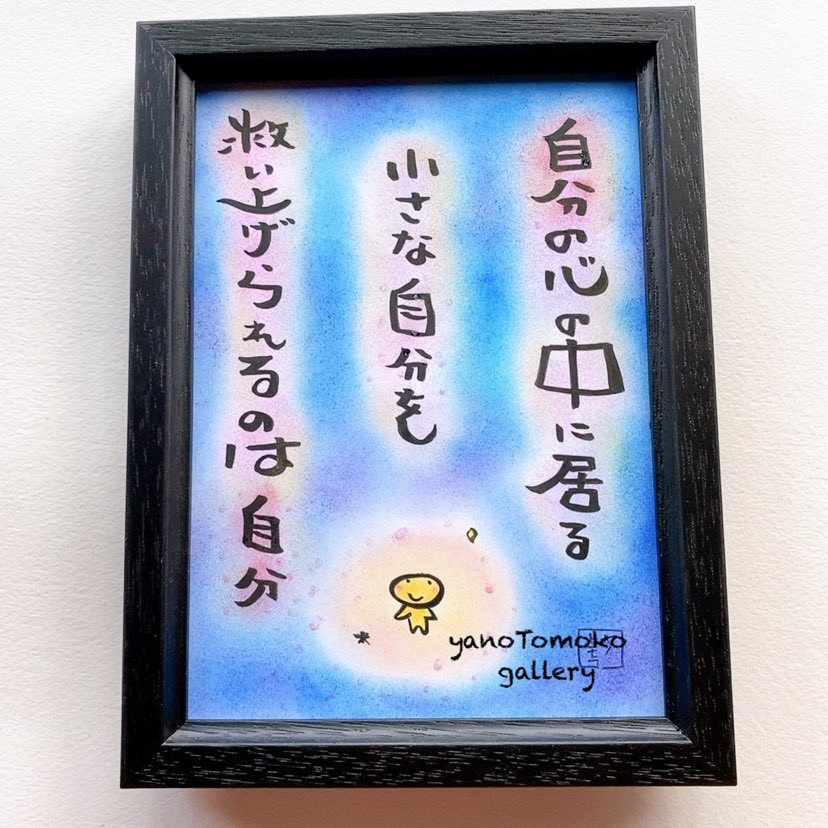 自分の心の中に居る
小さな自分を
救い上げられるのは自分
yanoTomoko
gallery